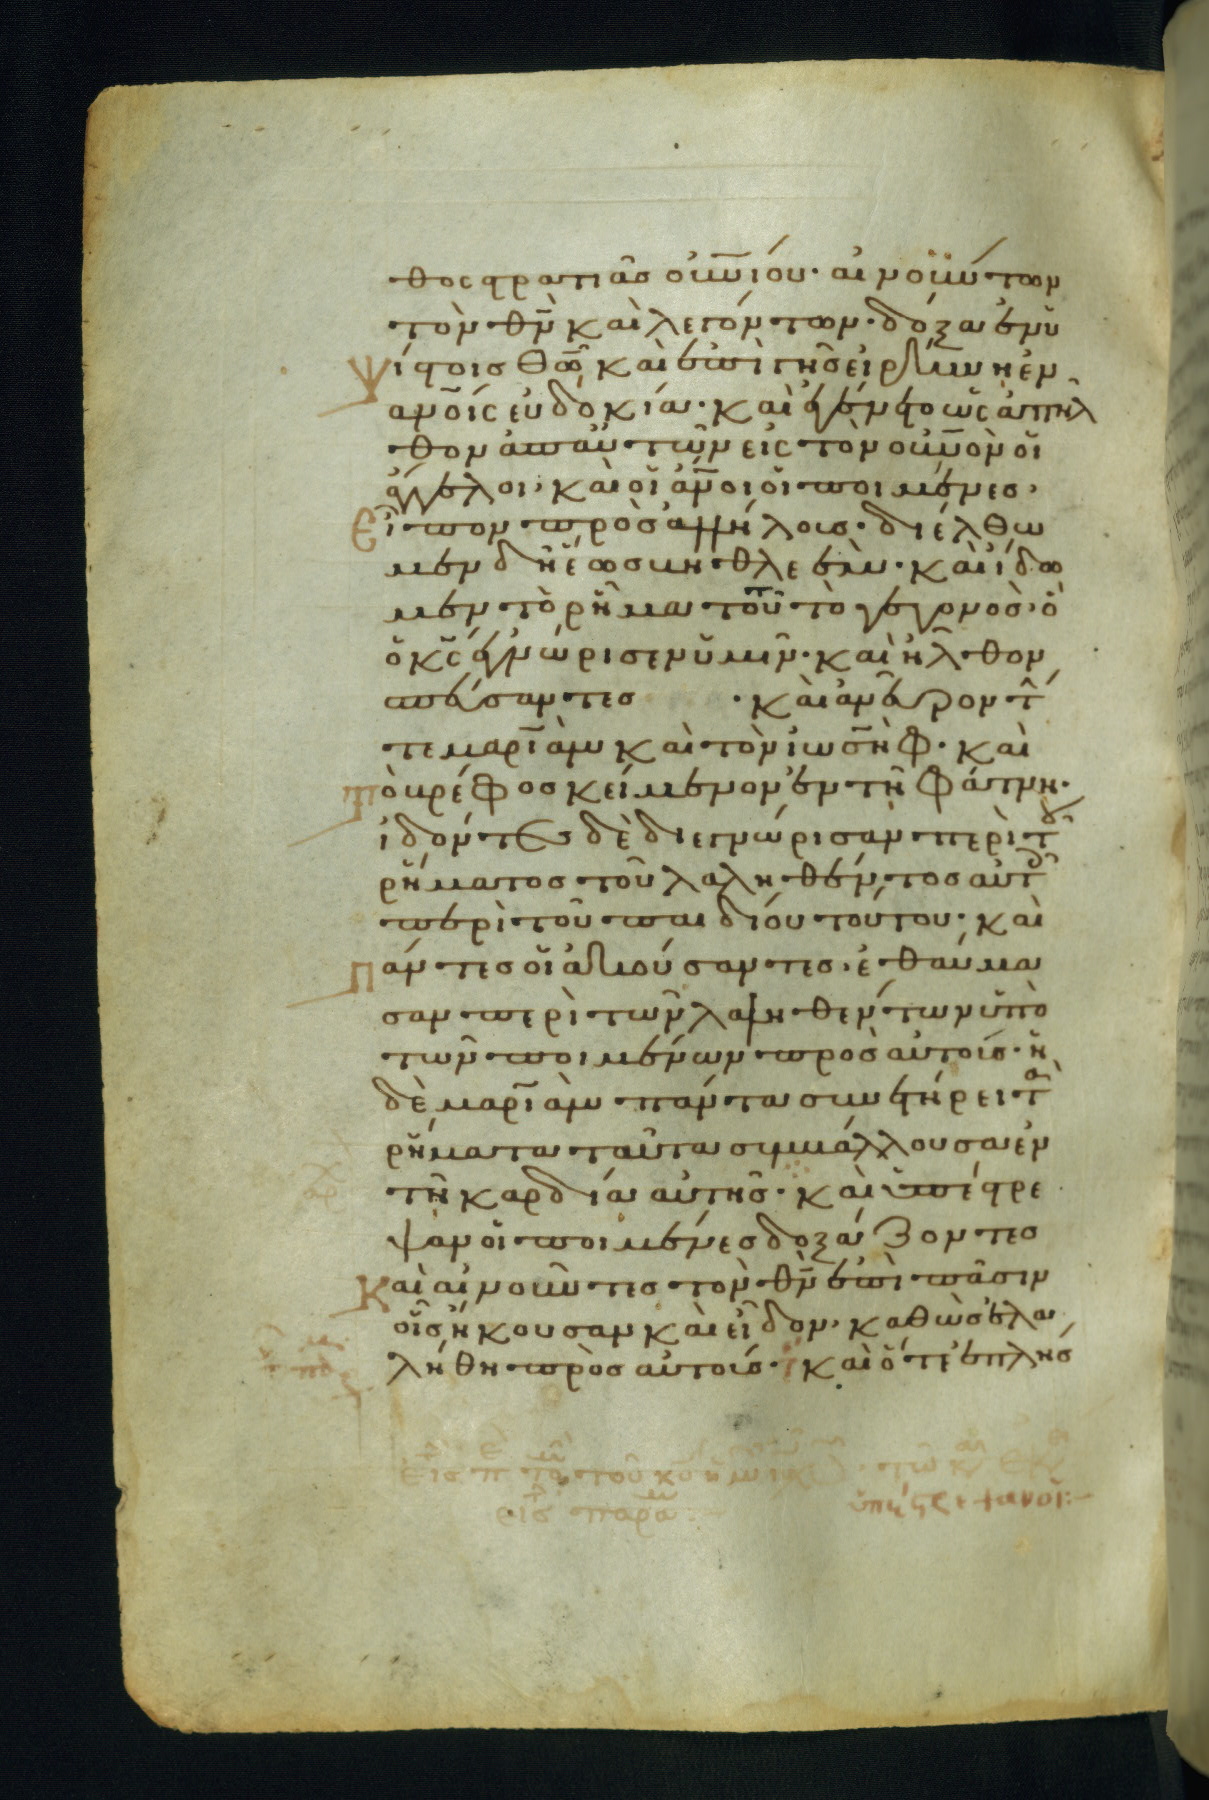 θος στρατιᾶς οὐνίου· αἰνούντων
τὸν θν̄ καὶ λεγόντων· δόξα ἐν ὑ
ψίστοις θω̄ καὶ ἐπὶ γῆς εἰρήνη ἐν
ἀνοῖς εὐδοκία· καὶ ἐγένετο ὡς ἀπῆλ
θον ἀπ αὐτῶν εἰς τὸν οὐνὸν οἱ
ἄγγελοι· καὶ οἱ ἄνοι οἱ ποιμένες·
Εἶπον πρὸς ἀλλήλους· διέλθω
μεν δὴ ἕως βηθλεὲμ· καὶ ἴδω
μεν τὸ ῥῆμα τοῦτο τὸ γεγονὸς· ὃ
ὁ κς̄ ἐγνώρισεν ὑμῖν· καὶ ἦλθον
σπεύσαντες · καὶ ἀνεῦρον τήν
τε μαριὰμ καὶ τὸν ἰωσὴφ· καὶ
Τὸ βρέφος κείμενον ἐν τῇ φάτνῃ·
ἰδόντες δὲ διεγνώρισαν περὶ τοῦ
ῥήματος τοῦ λαληθέντος αὐτοῖς
περὶ τοῦ παιδίου τούτου· καὶ
Πάντες οἱ ἀκούσαντες· ἐθαύμα
σαν περὶ τῶν λαληθέντων ὑπὸ
τῶν ποιμένων πρὸς αὐτούς· ἡ
δὲ μαριὰμ πάντα συνετήρει τὰ
ῥήματα ταῦτα συμβάλλουσα ἐν
τῇ καρδίᾳ αὐτῆς· καὶ ὑπέστρε
ψαν οἱ ποιμένες δοξάζοντες
Καὶ αἰνοῦντες τὸν θν̄ ἐπὶ πᾶσιν
οἷς ἤκουσαν καὶ εἶδον· καθὼς ἐλα
λήθη πρὸς αὐτούς· καὶ ὅτε ἐπλήσ